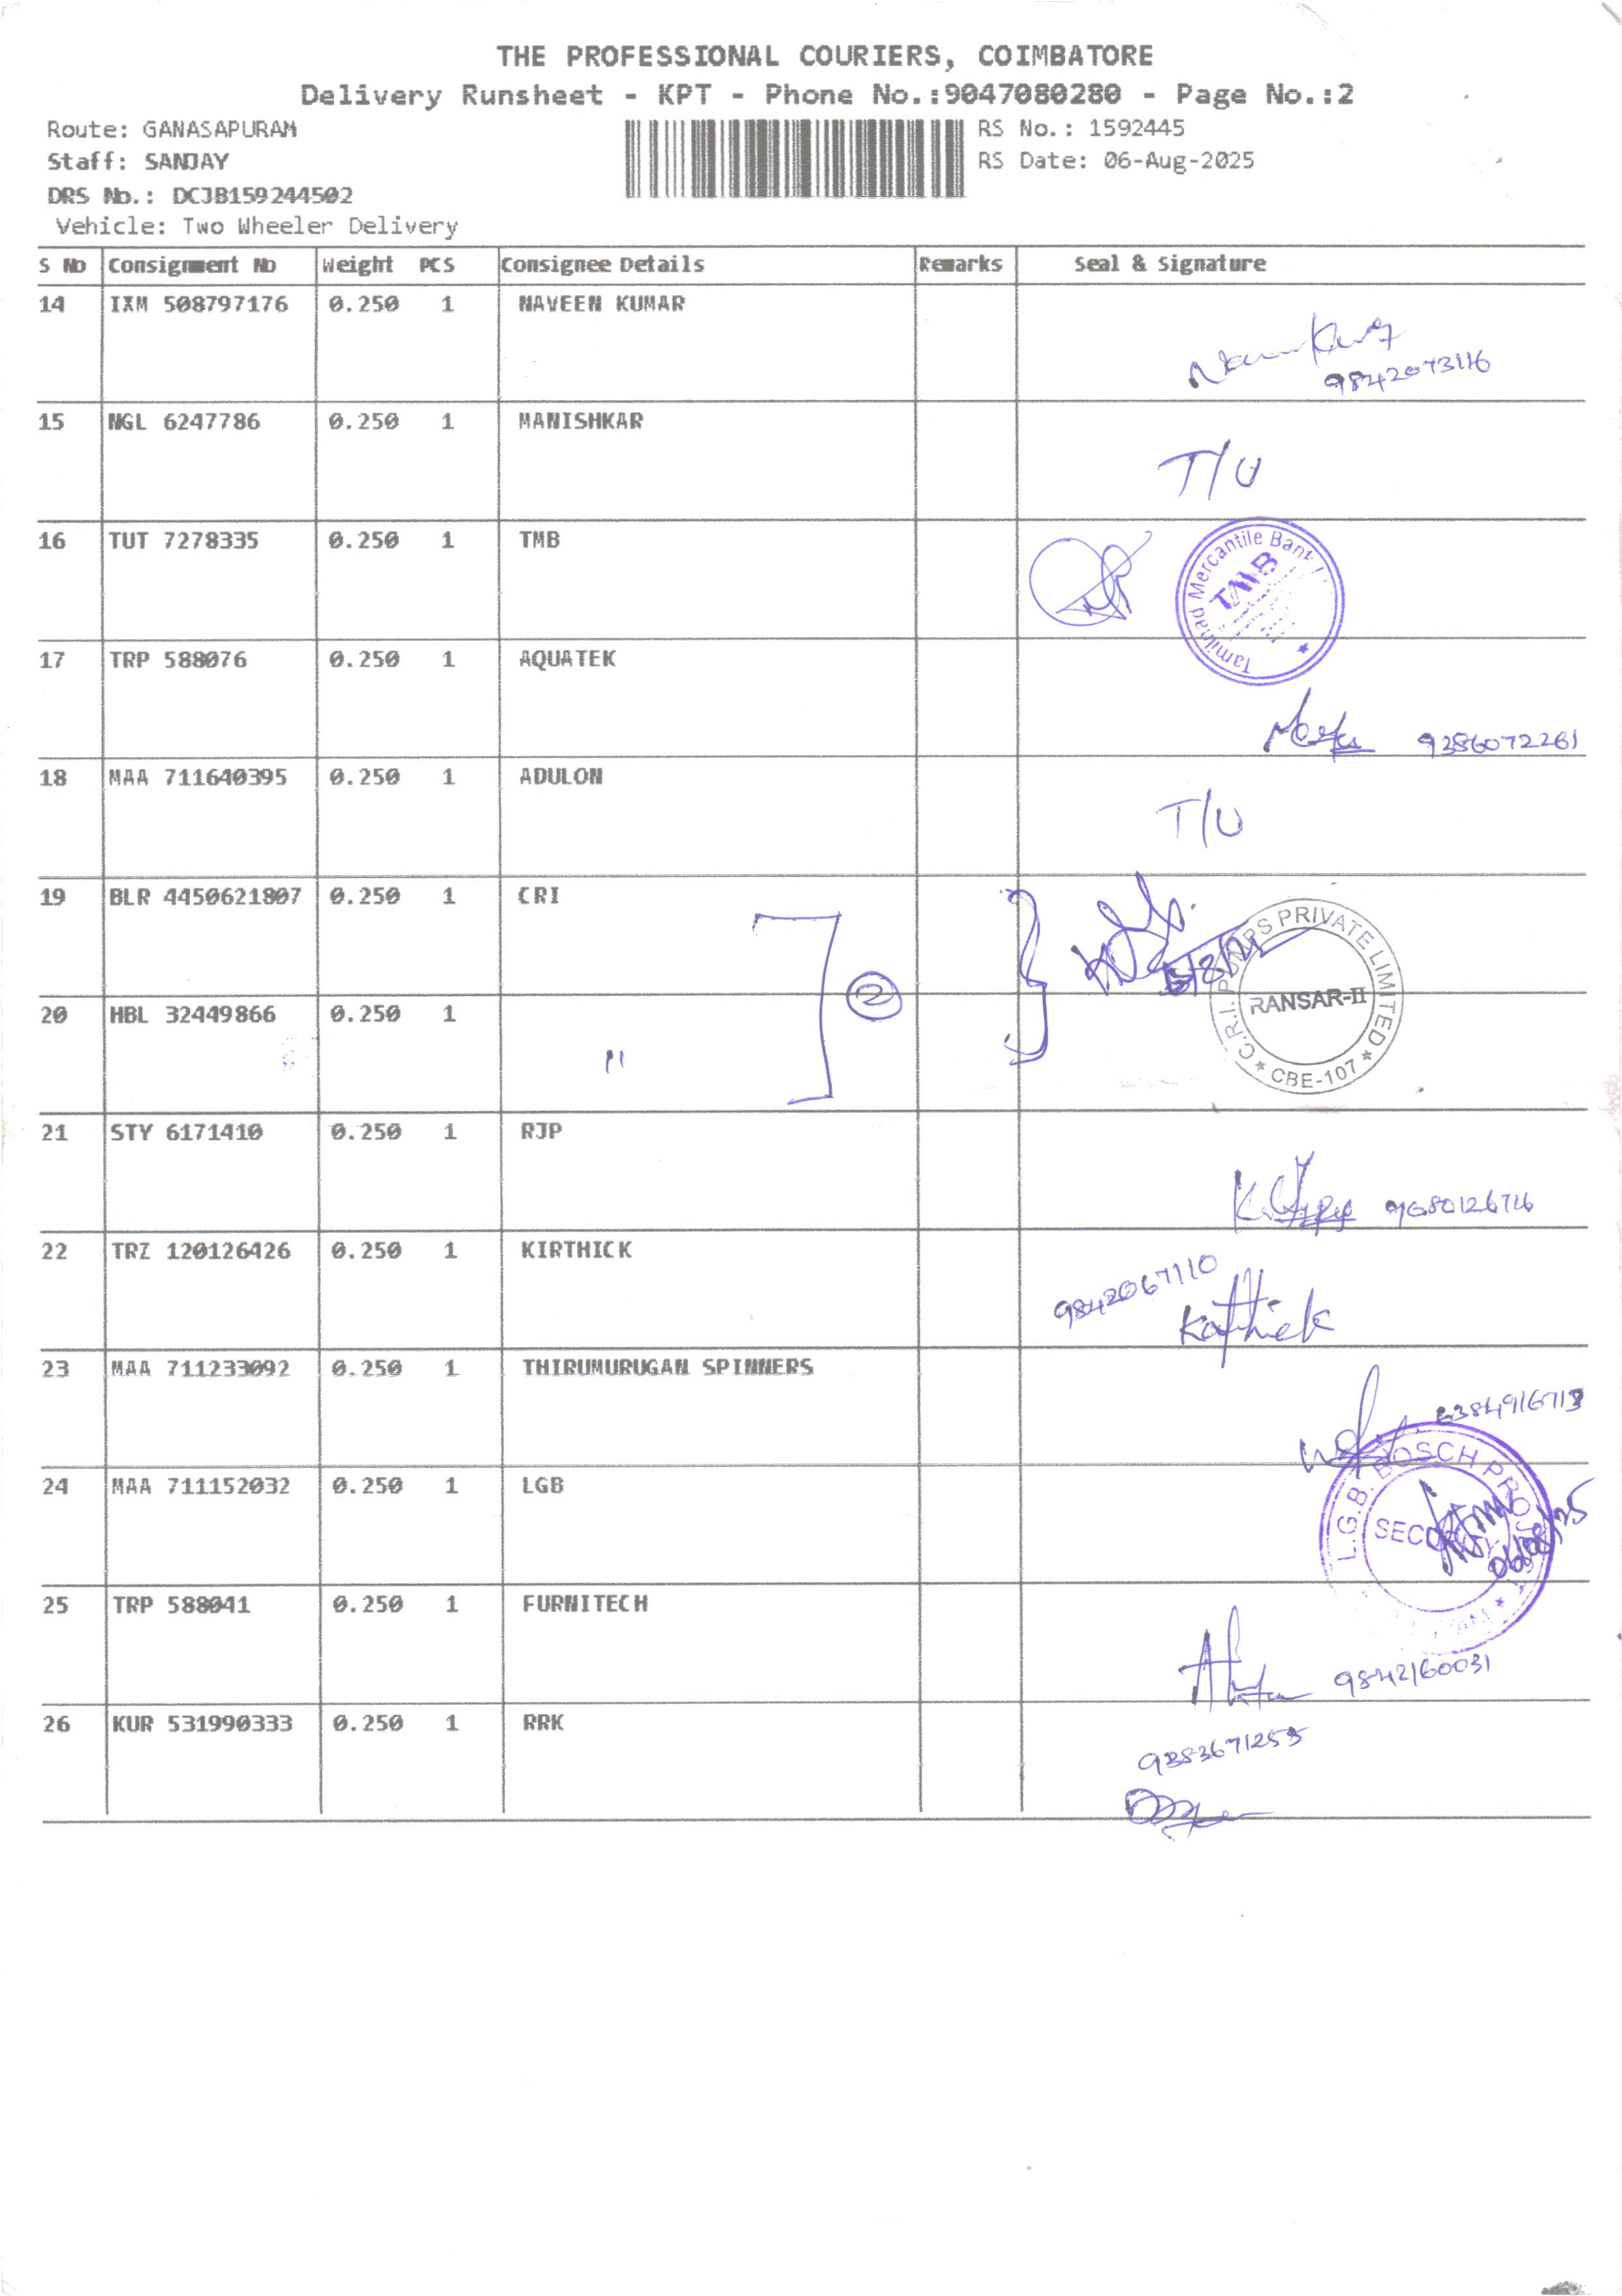 THE PROFESSIONAL COURIERS, COIMBATORE
Delivery Runsheet - KPT - Phone No.:9047080280 - Page No.:2
Route: GANASAPURAM
RS No.: 1592445
Staff: SANJAY
RS Date: 06-Aug-2025
DRS No.: DCJB159244502
Vehicle: Two Wheeler Delivery
S No Consignment No Weight PCS Consignee Details Remarks Seal & Signature
14 IXM 508797176 0.250 1 NAVEEN KUMAR
9842073116
15 NGL 6247786 0.250 1 MANISHKAR
T/U
16 TUT 7278335 0.250 1 TMB
Tamilnad Mercantile Bank
TMB
17 TRP 588076 0.250 1 AQUATEK
9286072261
18 MAA 711640395 0.250 1 ADULON
T/U
19 BLR 4450621807 0.250 1 CRI
C.R.I. PUMPS PRIVATE LIMITED
RANSAR-II
CBE-107
2
20 HBL 32449866 0.250 1
"
21 STY 6171410 0.250 1 RJP
22 TRZ 120126426 0.250 1 KIRTHICK
9842067110
Kathick
23 MAA 711233092 0.250 1 THIRUMURUGAN SPINNERS
24 MAA 711152032 0.250 1 LGB
L.G.B. BOSCH
SECURITY
06/08/25
25 TRP 588041 0.250 1 FURNITECH
9842160031
26 KUR 531990333 0.250 1 RRK